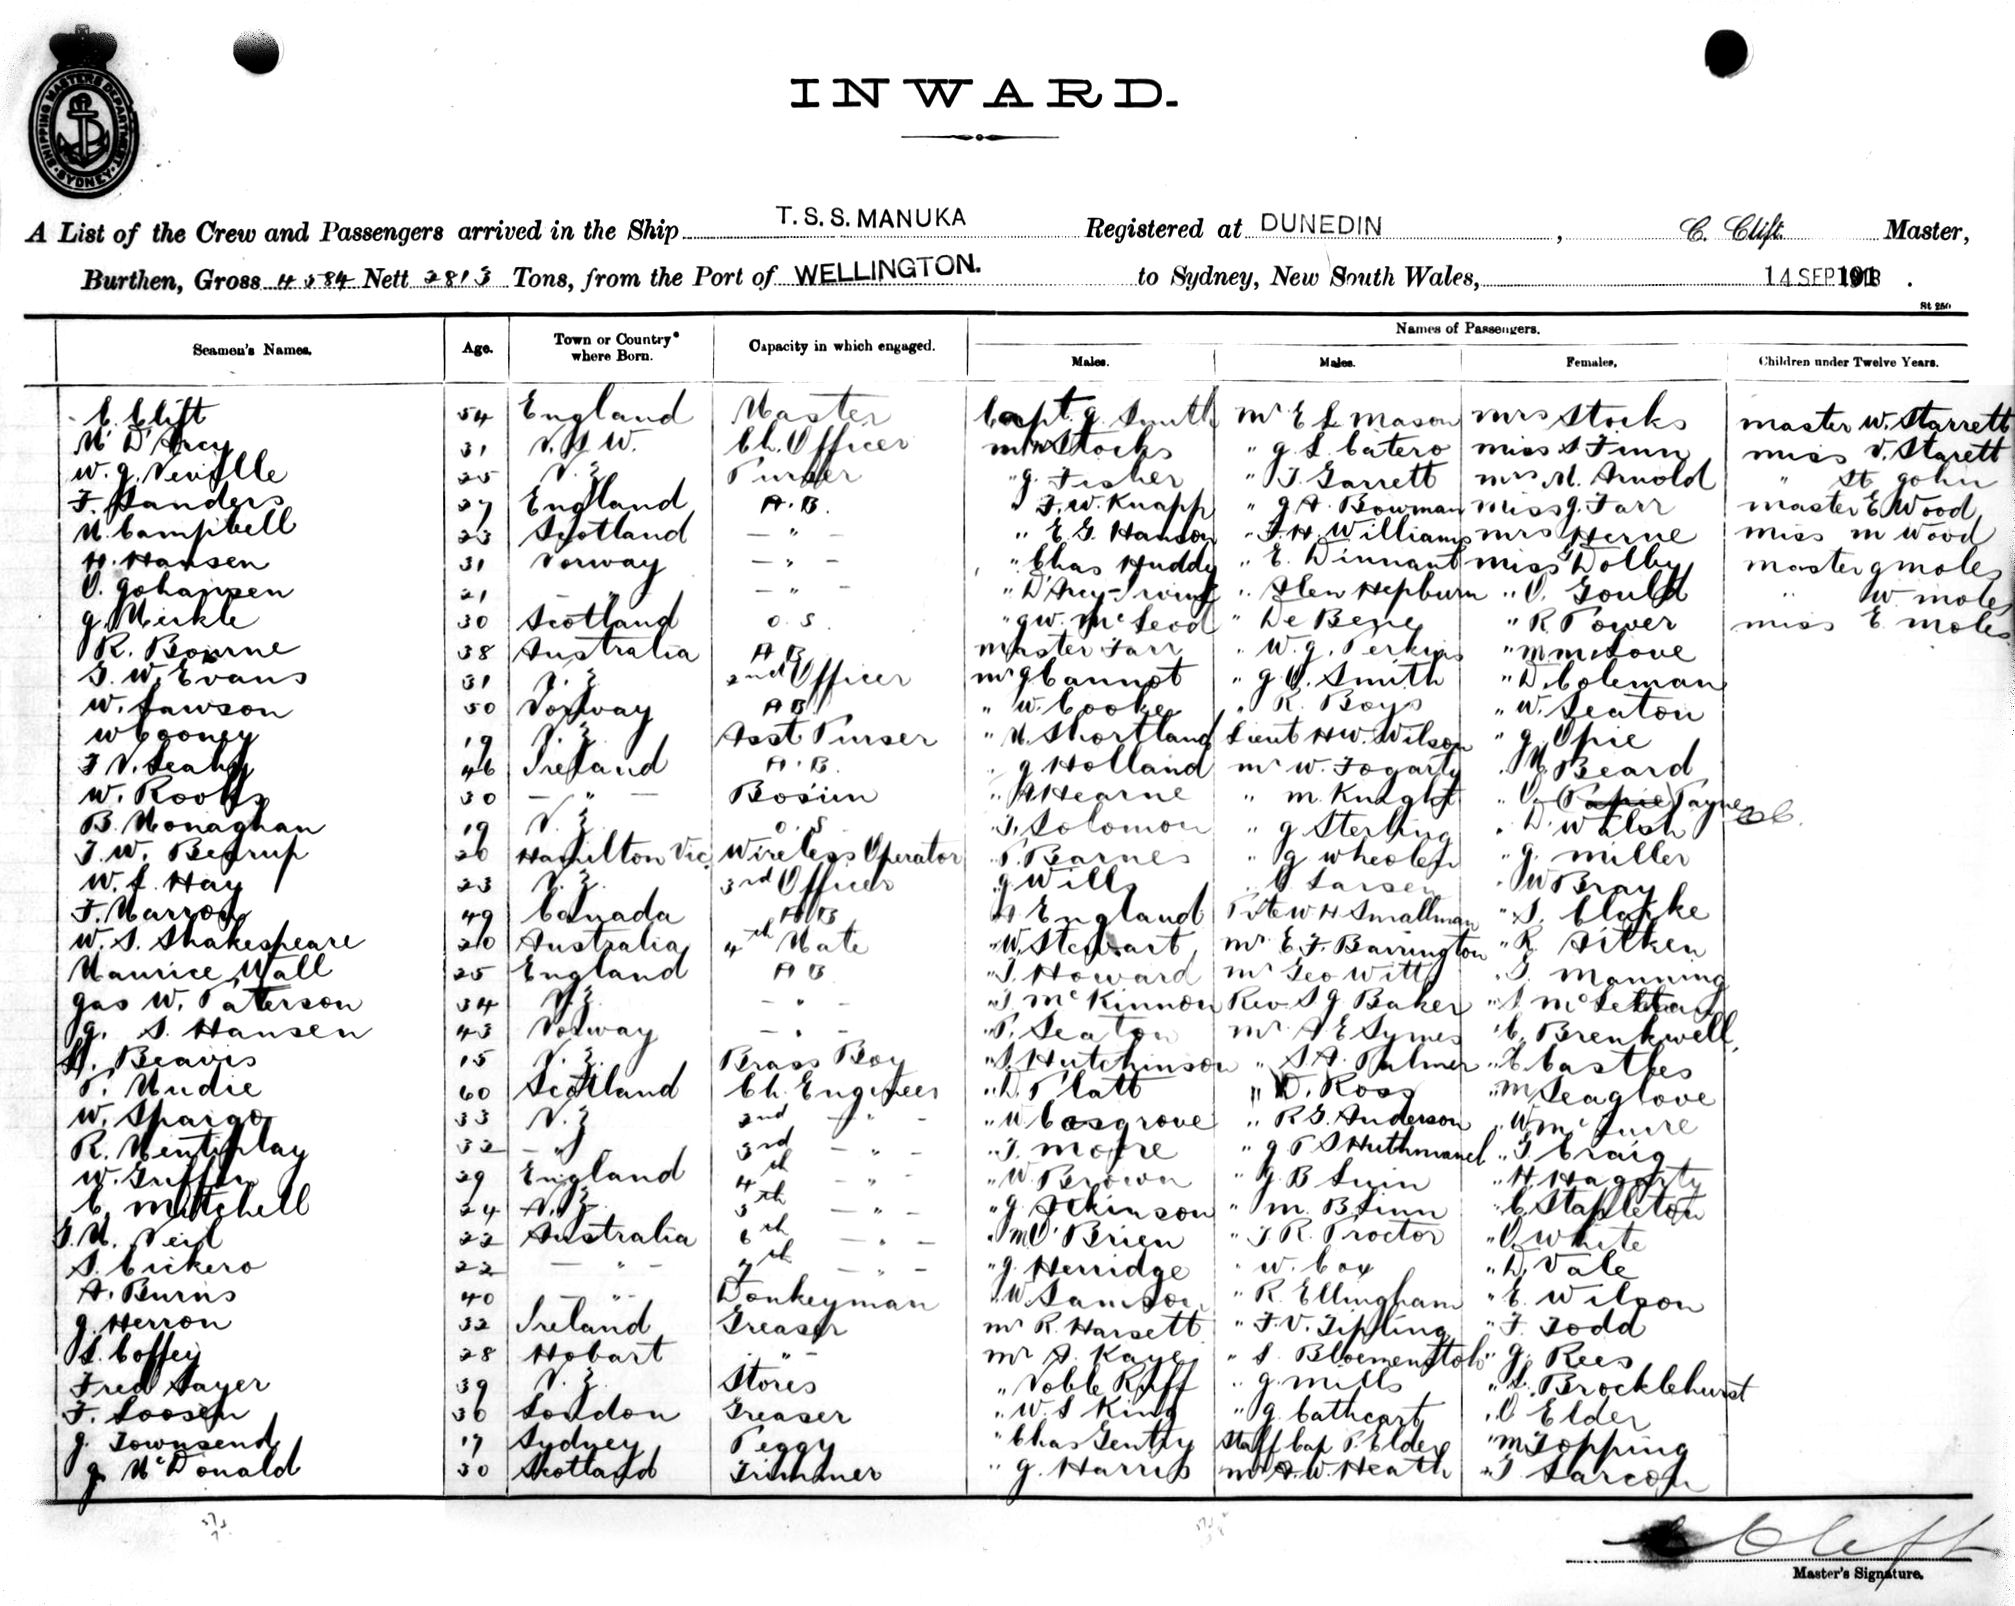 SHIPPING MASTERS DEPARTMENT SYDNEY
INWARD.
A List of the Crew and Passengers arrived in the Ship T.S.S. MANUKA Registered at DUNEDIN, C. Clift Master,
Burthen, Gross 4584 Nett 2813 Tons, from the Port of WELLINGTON. to Sydney, New South Wales, 14 SEP 191
St 250
Names of Passengers.
Seamen's Names. Age. Town or Country where Born. Capacity in which engaged. Males. Males. Females. Children under Twelve Years.
C. Clift 54 England Master Capt. J. Smith Mr E L Mason Mrs Stocks Master W. Starrett
M D'Arcy 31 N.S.W. Ch. Officer Mr Stocks " J. L. Catero Miss S Finn Miss V. Starett
W. J. Neville 25 N.Z. Purser " J. Fisher " T. Garrett Mrs M. Arnold " St John
F. Sanders 27 England A.B. " F. W. Knapp " J A. Bowman Miss J. Farr Master E Wood
N. Campbell 23 Scotland — " — " E. G. Hanson " F. H. Williams Mrs Herne Miss M Wood
H. Hansen 31 Norway — " — " Chas Huddy " E. Dinnant Miss Dolby Master J Moles
O. Johansen 21 — " — — " — " D'Arcy-Irvine " Alen Hepburn " O. Gould " W. Moles
J. Meikle 30 Scotland O.S. " J W. McLeod " De Bene " R. Power Miss E. Moles
R. Bourne 38 Australia A B Master Farr " W. J. Perkins " M McLove
G. W. Evans 31 N.Z. 2nd Officer Mr J Cannot " J O. Smith " D. Coleman
W. Lawson 50 Norway A B " W. Cooke " R. Boys " W. Seaton
W Cooney 19 N.Z. Asst Purser " M. Shortland Lieut H W. Wilson " J. Opie
F V. Leahy 46 Ireland A.B. " J Holland Mr W. Fogarty " M. Beard
W. Rooks 30 — " — Bosun " A Hearne " M. Knight " O. Payne
B. Monaghan 19 N.Z. O.S. " S. Solomon " J Sterling " D. Walsh
F. W. Begrup 26 Hamilton Vic. Wireless Operator " P. Barnes " J Wheeler " J. Miller
W. L. Hay 23 N.Z. 3rd Officer " J Wills " Larsen " W Bray
F. Marrow 49 Canada A B " A England Pte W H Smallman " S. Clarke
W. S. Shakespeare 20 Australia 4th Mate " W. Stewart Mr E. F. Barrington " R. Aitken
Maurice Wall 25 England A B " T. Howard Mr Geo Witt " T. Manning
Jas W. Paterson 34 N.Z. — " — " T McKinnon Rev S J Baker
J. S. Hansen 43 Norway — " — " P. Seaton Mr A E Symes " C. Brenkwell
H. Beavis 15 N.Z. Brass Boy " S. Hutchinson " S A. Palmer " C Castles
P. Mudie 60 Scotland Ch. Engineer " D. Platt " D. Ross " M Seaglove
W. Spargo 33 N.Z. 2nd — " — " W Cosgrove " R G. Anderson
R. Mentiplay 32 — " — 3rd — " — " T. Moore " T. Craig
W. Griffin 29 England 4th — " — " W. Brown " J. B Linn " H. Hagarty
C. Mitchell 24 N.Z. 5th — " — " J. Atkinson " M. B Linn " C. Stapleton
G. M. Neil 22 Australia 6th — " — " M O'Brien " F R. Proctor " O. White
S. Cickero 22 — " — 7th — " — " J. Herridge " W. Cox " D. Vale
A. Burns 40 — " — Donkeyman " W. Samson " R. Ellingham " E. Wilson
J. Herron 32 Ireland Greaser Mr R. Harsett " F. V. Tipling " F. Todd
S. Coffey 28 Hobart — " — Mr A. Kaye " J. Rees
Fred Sayer 39 N.Z. Stores " Noble Ruff " J. Mills " S. Brocklehurst
F. Loosen 36 London Greaser " W. S King " J. Cathcart " O Elder
J. Townsend 17 Sydney Peggy " Chas Gentry Staff Cap P. Elder " M Topping
J. McDonald 30 Scotland Trimmer " J. Harris Mr A. W. Heath " T Sarcon
C Clift
Master's Signature.